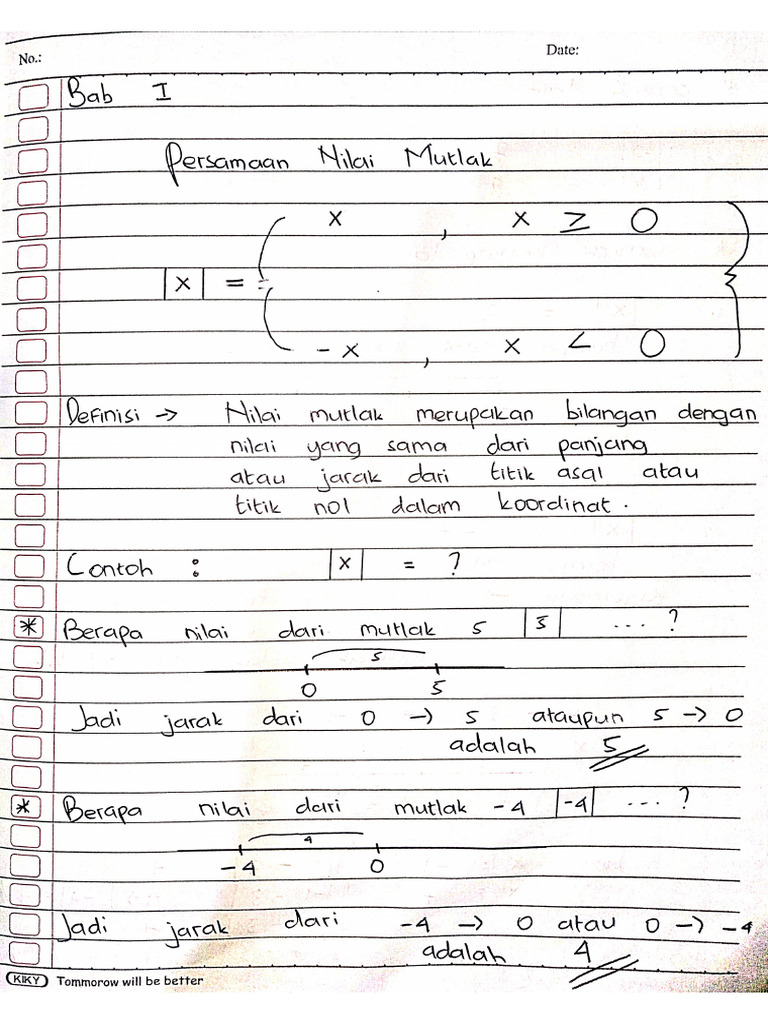 No.: Date:
Bab I
Persamaan Nilai Mutlak
x , x ≥ 0
|x| =
-x , x < 0
Definisi → Nilai mutlak merupakan bilangan dengan
nilai yang sama dari panjang
atau jarak dari titik asal atau
titik nol dalam koordinat.
Contoh : |x| = ?
* Berapa nilai dari mutlak 5 |5| ... ?
5
0 5
Jadi jarak dari 0 → 5 ataupun 5 → 0
adalah 5
* Berapa nilai dari mutlak -4 |-4| ... ?
4
-4 0
Jadi jarak dari -4 → 0 atau 0 → -4
adalah 4
KIKY Tommorow will be better